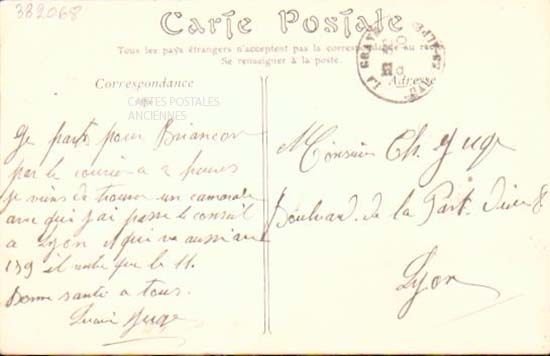 332068
Carte Postale
Tous les pays étrangers n'acceptent pas la correspondance au
Se renseigner à la poste.
Correspondance
Adresse
LA GRAVE
CARTES POSTALES
ANCIENNES
Je parts pour Briancon
par le courier a 2 heures
je viens de trouver un camarade
avec qui j'ai passé le conseil
a Lyon et qui va aussi au
159 il
que le 11.
Bonne santé a tous.
Juge
Monsieur Ch. Juge
Boulevard de la Part Dieu 8
Lyon